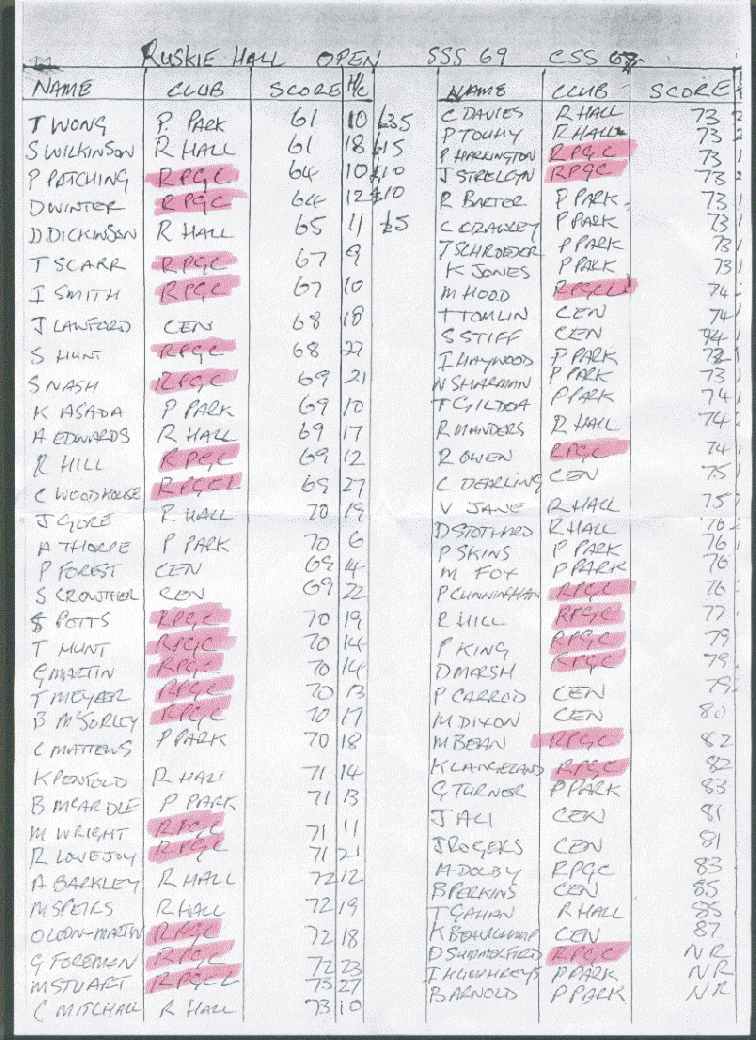 RUSKIE HALL OPEN SSS 69 CSS 67
NAME CLUB SCORE H/C
T WONG P. PARK 61 10 £35
S WILKINSON R HALL 61 18 £15
P PATCHING RPGC 64 10 £10
D WINTER RPGC 64 12 £10
D DICKINSON R HALL 65 11 £5
T SCARR RPGC 67 9
I SMITH RPGC 67 10
J LAWFORD CEN 68 18
S HUNT RPGC 68 27
S NASH RPGC 69 21
K ASADA P PARK 69 10
A EDWARDS R HALL 69 17
R HILL RPGC 69 12
C WOODHOUSE RPGC 69 27
J GORE R HALL 70 19
A THORPE P PARK 70 6
P FOREST CEN 69 14
S CROWTHER CEN 69 22
S POTTS RPGC 70 19
T HUNT RPGC 70 14
G MARTIN RPGC 70 14
T MEYBER RPGC 70 13
B McSORLEY RPGC 70 17
C MATTEWS P PARK 70 18
K PENFOLD R HALL 71 14
B MCARDLE P PARK 71 13
M WRIGHT RPGC 71 11
R LOVEJOY RPGC 71 21
A BARKLEY R HALL 72 12
M SPEIRS R HALL 72 19
O LEON-MARTIN RPGC 72 18
G FOREMAN RPGC 72 23
M STUART RPGC 73 27
C MITCHALL R HALL 73 10
NAME CLUB SCORE
C DAVIES R HALL 73
P TOUHY R HALL 73
P HARLINGTON RPGC 73
J STRELCYN RPGC 73
R BAXTER P PARK 73
C CRAWLEY P PARK 73
T SCHROEDER P PARK 73
K JONES P PARK 73
M HOOD RPGC 74
T TOMLIN CEN 74
S STIFF CEN 74
I HAYWOOD P PARK
N SHARMAN P PARK 73
T GILDEA P PARK 74
R MANDERS R HALL 74
R OWEN RPGC 74
C DEARLING CEN 75
V JANE R HALL 75
D STOTHARD R HALL
P SKINS P PARK 76
M FOX P PARK 76
P CUNNINGHAM RPGC 76
R HILL RPGC 77
P KING RPGC 79
D MARSH RPGC 79
P CARROD CEN 79
M DIXON CEN 80
M BEAN RPGC 82
K LANGELAND RPGC 82
G TURNER P PARK 83
J ALI CEN 81
J ROGERS CEN 81
M DOLBY RPGC 83
B PERKINS CEN 85
T GAHAN R HALL 85
K BEAUCHAMP CEN 87
D SUMMERFIELD RPGC NR
I HUMHREYS P PARK NR
B ARNOLD P PARK NR